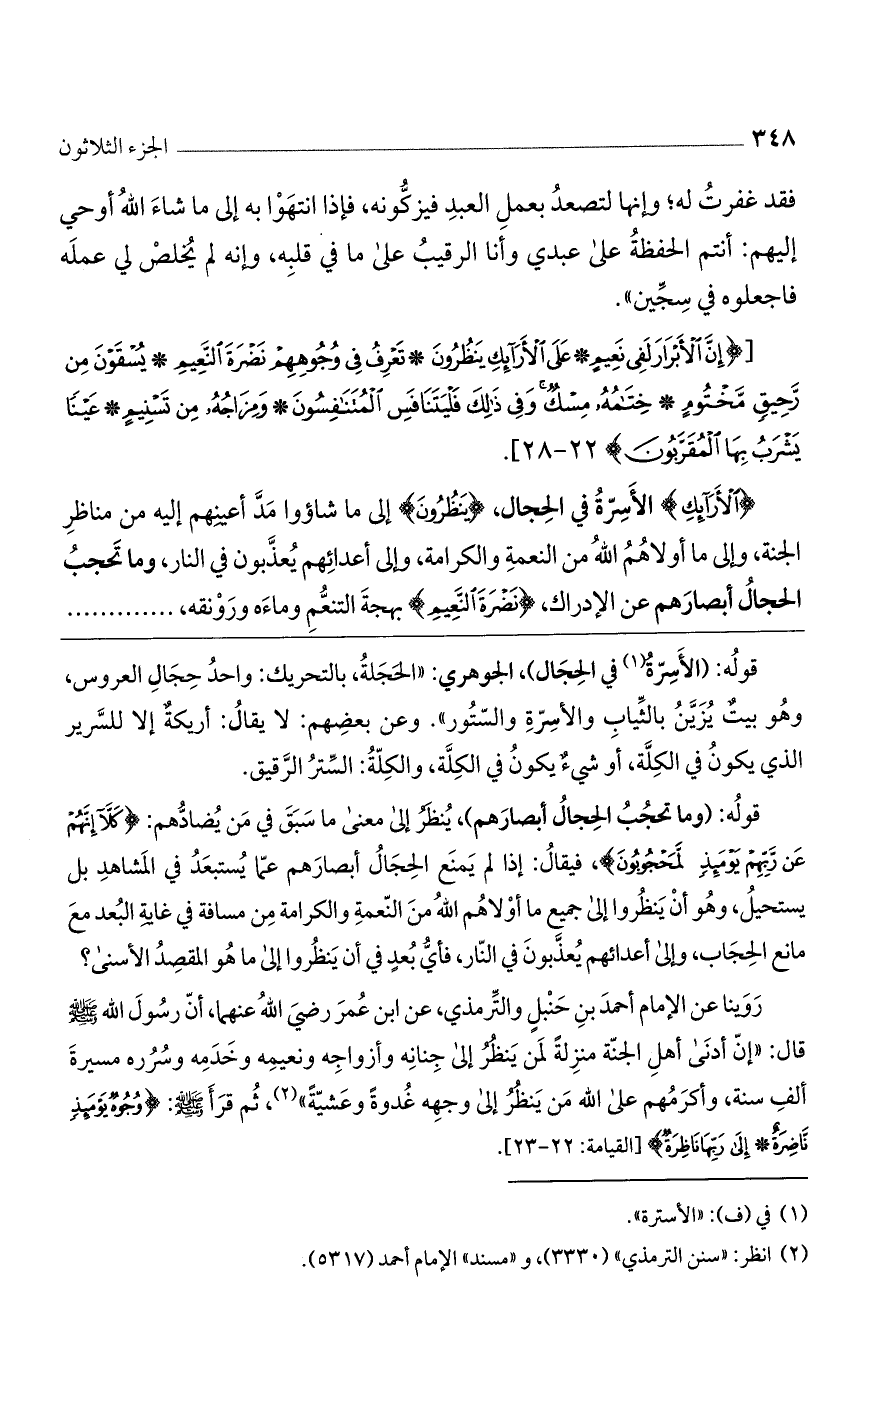 ٣٤٨ الجزء الثلاثون
فقد غفرتُ له؛ وإنها لتصعدُ بعملِ العبدِ فيزكُّونه، فإذا انتهَوْا به إلى ما شاءَ اللهُ أوحي
إليهم: أنتم الحفظةُ علىٰ عبدي وأنا الرقيبُ علىٰ ما في قلبِه، وإنه لم يُخلصْ لي عملَه
فاجعلوه في سِجِّين».
[﴿إِنَّ ٱلْأَبْرَارَ لَفِى نَعِيمٍ * عَلَى ٱلْأَرَآئِكِ يَنظُرُونَ * تَعْرِفُ فِى وُجُوهِهِمْ نَضْرَةَ ٱلنَّعِيمِ * يُسْقَوْنَ مِن
رَّحِيقٍ مَّخْتُومٍ * خِتَٰمُهُۥ مِسْكٌ ۚ وَفِى ذَٰلِكَ فَلْيَتَنَافَسِ ٱلْمُتَنَٰفِسُونَ * وَمِزَاجُهُۥ مِن تَسْنِيمٍ * عَيْنًا
يَشْرَبُ بِهَا ٱلْمُقَرَّبُونَ﴾ ٢٢-٢٨].
﴿ٱلْأَرَآئِكِ﴾ الأَسِرّةُ في الحِجال، ﴿يَنظُرُونَ﴾ إلى ما شاؤوا مَدَّ أعينِهم إليه من مناظرِ
الجنة، وإلى ما أولاهُمُ اللهُ من النعمةِ والكرامة، وإلى أعدائِهم يُعذَّبون في النار، وما تَحجبُ
الحجالُ أبصارَهم عن الإدراك، ﴿نَضْرَةَ ٱلنَّعِيمِ﴾ بهجةَ التنعُّمِ وماءَه ورَوْنقه، .............
قولُه: (الأَسِرّةُ(١) في الحِجَال)، الجوهري: «الحَجَلةُ، بالتحريك: واحدُ حِجَالِ العروس،
وهُو بيتٌ يُزَيَّنُ بالثِّيابِ والأسِرّةِ والسّتُور». وعن بعضِهم: لا يقالُ: أريكةٌ إلا للسَّرير
الذي يكونُ في الكِلَّة، أو شيءٌ يكونُ في الكِلَّة، والكِلّةُ: السِّترُ الرَّقيق.
قولُه: (وما تحجُبُ الحِجالُ أبصارَهم)، يُنظَرُ إلىٰ معنىٰ ما سَبَقَ في مَن يُضادُّهم: ﴿كَلَّآ إِنَّهُمْ
عَن رَّبِّهِمْ يَوْمَئِذٍ لَّمَحْجُوبُونَ﴾، فيقالُ: إذا لم يَمنَع الحِجَالُ أبصارَهم عمّا يُستبعَدُ في المَشاهدِ بل
يستحيلُ، وهُو أنْ يَنظُروا إلىٰ جميع ما أوْلاهُم اللهُ منَ النّعمةِ والكرامة مِن مسافة في غايةِ البُعد معَ
مانع الحِجَاب، وإلىٰ أعدائهم يُعذَّبونَ في النّار، فأيُّ بُعدٍ في أن يَنظُروا إلىٰ ما هُو المقصِدُ الأسنىٰ؟
رَوَينا عن الإمام أحمدَ بنِ حَنْبلٍ والتِّرمذي، عن ابن عُمرَ رضيَ اللهُ عنهما، أنّ رسُولَ الله ﷺ
قال: «إنّ أدنَىٰ أهلِ الجنّة منزِلةً لَمن يَنظُرُ إلىٰ جِنانِه وأزواجِه ونعيمِه وخَدَمِه وسُرُره مسيرةَ
ألفِ سنة، وأكرَمُهم علىٰ الله مَن يَنظُرُ إلىٰ وجهِه غُدوةً وعَشيّةً»(٢)، ثُم قرَأَ ﷺ: ﴿وُجُوهٌ يَوْمَئِذٍ
نَّاضِرَةٌ * إِلَىٰ رَبِّهَا نَاظِرَةٌ﴾ [القيامة: ٢٢-٢٣].
(١) في (ف): «الأسترة».
(٢) انظر: «سنن الترمذي» (٣٣٣٠)، و «مسند» الإمام أحمد (٥٣١٧).